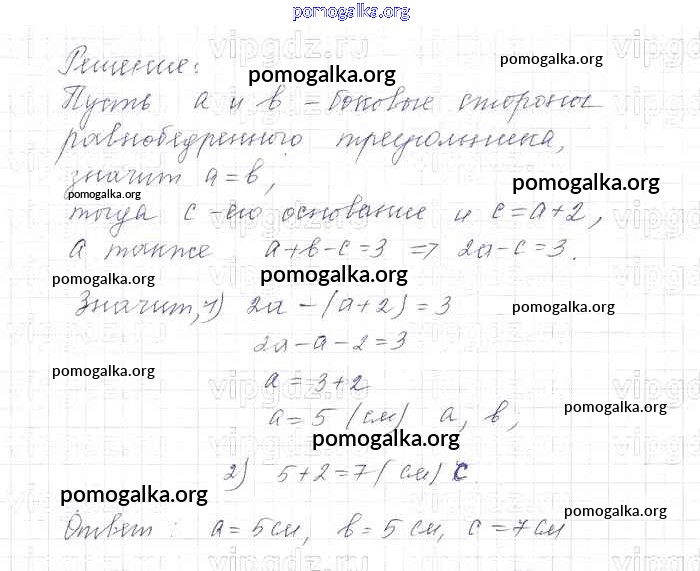 pomogalka.org
Решение:
pomogalka.org
Пусть a и b – боковые стороны
равнобедренного треугольника,
значит a = b,
pomogalka.org
pomogalka.org
тогда c – его основание и c = a + 2,
а также a + b – c = 3 => 2a – c = 3.
pomogalka.org
pomogalka.org
Значит, 1) 2a – (a + 2) = 3
pomogalka.org
2a – a – 2 = 3
pomogalka.org
a = 3 + 2
a = 5 (см) a, b;
pomogalka.org
pomogalka.org
2) 5 + 2 = 7 (см) c
pomogalka.org
pomogalka.org
Ответ: a = 5 см, b = 5 см, c = 7 см